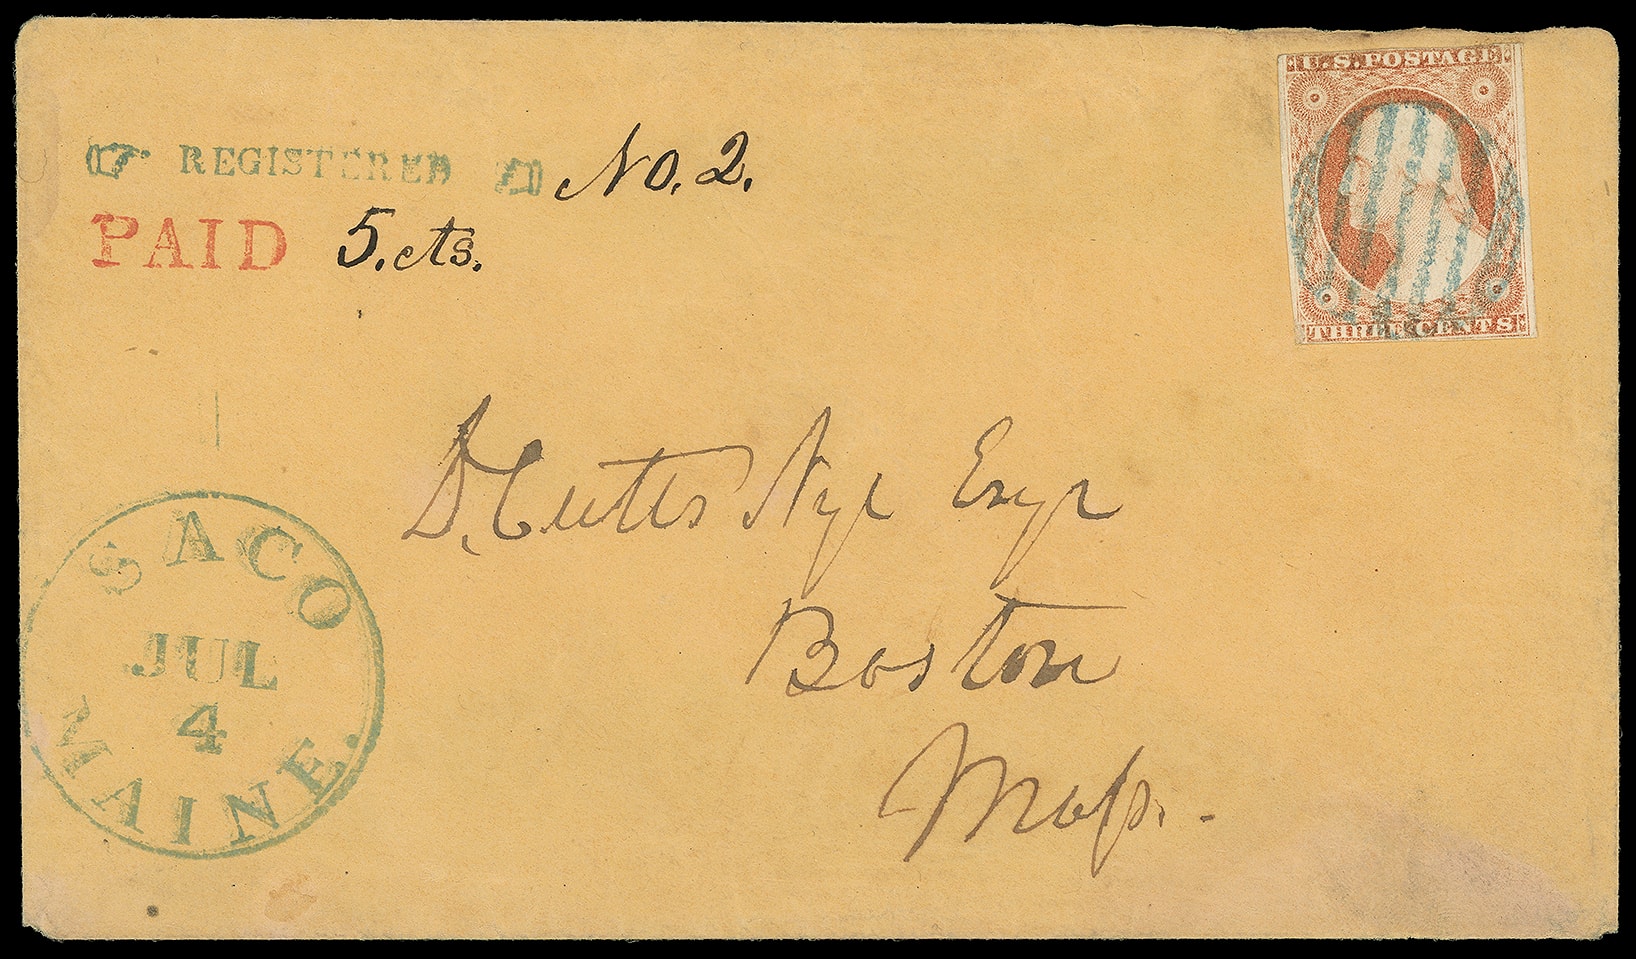 REGISTERED No. 2.
PAID 5. cts.
U.S. POSTAGE
THREE CENTS
D. Cutts Nye Esqr
Boston
Mass.
SACO
JUL
4
MAINE.